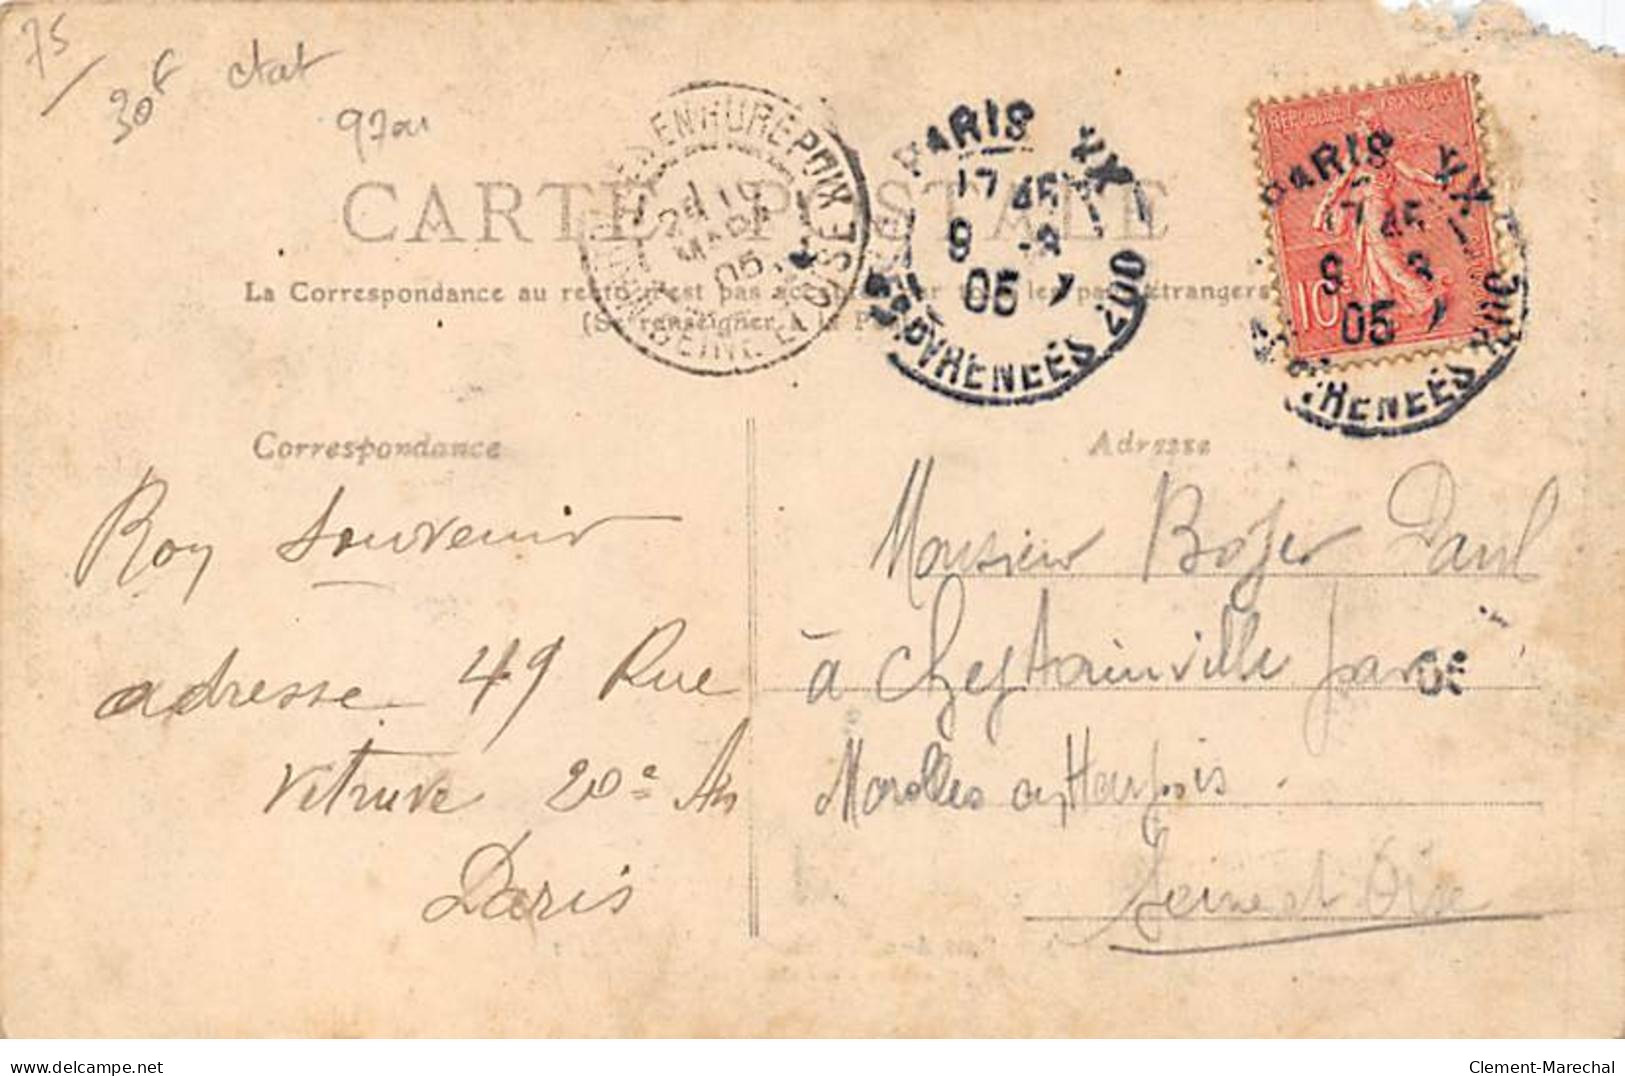 75
30F etat
CARTE POSTALE
La Correspondance au recto n'est pas acceptée par tous les pays étrangers
(Se renseigner à la Poste)
EN HUREPOIX
SEINE ET OISE
2E
MARS
05
PARIS XX
17 45
9 -3
05
PYRENEES
REPUBLIQUE FRANÇAISE
10
PARIS XX
17 45
9 3
05
PYRENEES
Correspondance
Bon Souvenir
adresse 49 Rue
Vitruve 20e Ar
Paris
Adresse
Monsieur Boyer Paul
à Cheptainville par
Marolles en Hurpois
Seine et Oise
delcampe.net
Clement-Marechal